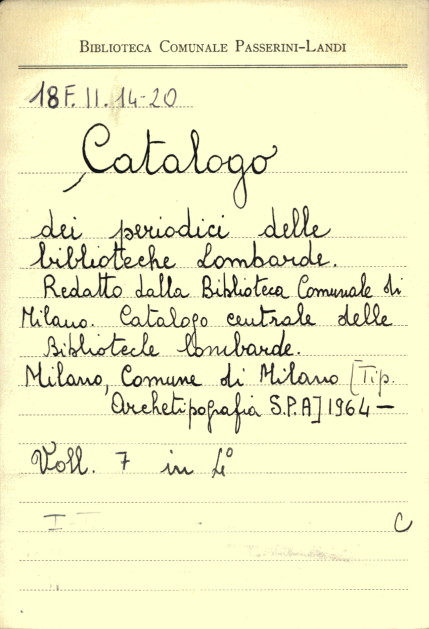 BIBLIOTECA COMUNALE PASSERINI-LANDI
18F.II.14-20
Catalogo
dei periodici delle
biblioteche Lombarde.
Redatto dalla Biblioteca Comunale di
Milano. Catalogo centrale delle
Biblioteche lombarde.
Milano, Comune di Milano [Tip.
Archetipografia S.P.A] 1964 —
Voll. 7 in 4°
I C